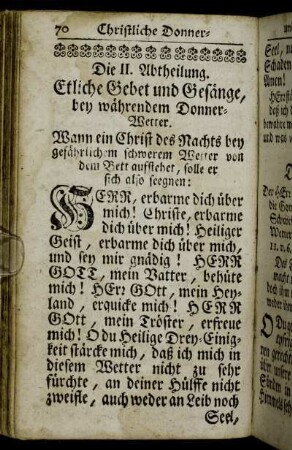 70 Christliche Donner-
Die II. Abtheilung.
Etliche Gebet und Gesänge,
bey währendem Donner-
Wetter.
Wann ein Christ des Nachts bey
gefährlichem schwerem Wetter von
dem Bett aufstehet, solle er
sich also seegnen:
HERR, erbarme dich über
mich! Christe, erbarme
dich über mich! Heiliger
Geist, erbarme dich über mich,
und sey mir gnädig! HERR
GOTT, mein Vatter, behüte
mich! HErr GOtt, mein Hey-
land, erquicke mich! HERR
GOtt, mein Tröster, erfreue
mich! O du Heilige Drey-Einig-
keit stärcke mich, daß ich mich in
diesem Wetter nicht zu sehr
fürchte, an deiner Hülffe nicht
zweifle, auch weder an Leib noch
Seel,
Seel,
Schaden
HErr
daß ich
bewahre
und was
Der HEr
die
Wetter